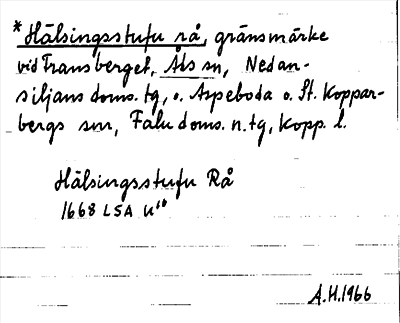 * Hälsingsstufu rå, gränsmärke
vid Transberget, Åls sn, Nedan-
siljans doms. tg, o. Aspeboda o. St. Koppar-
bergs snr, Falu doms. n. tg, Kopp. l.
Hälsingsstufu Rå
1668 LSA U¹⁰
A.H. 1966